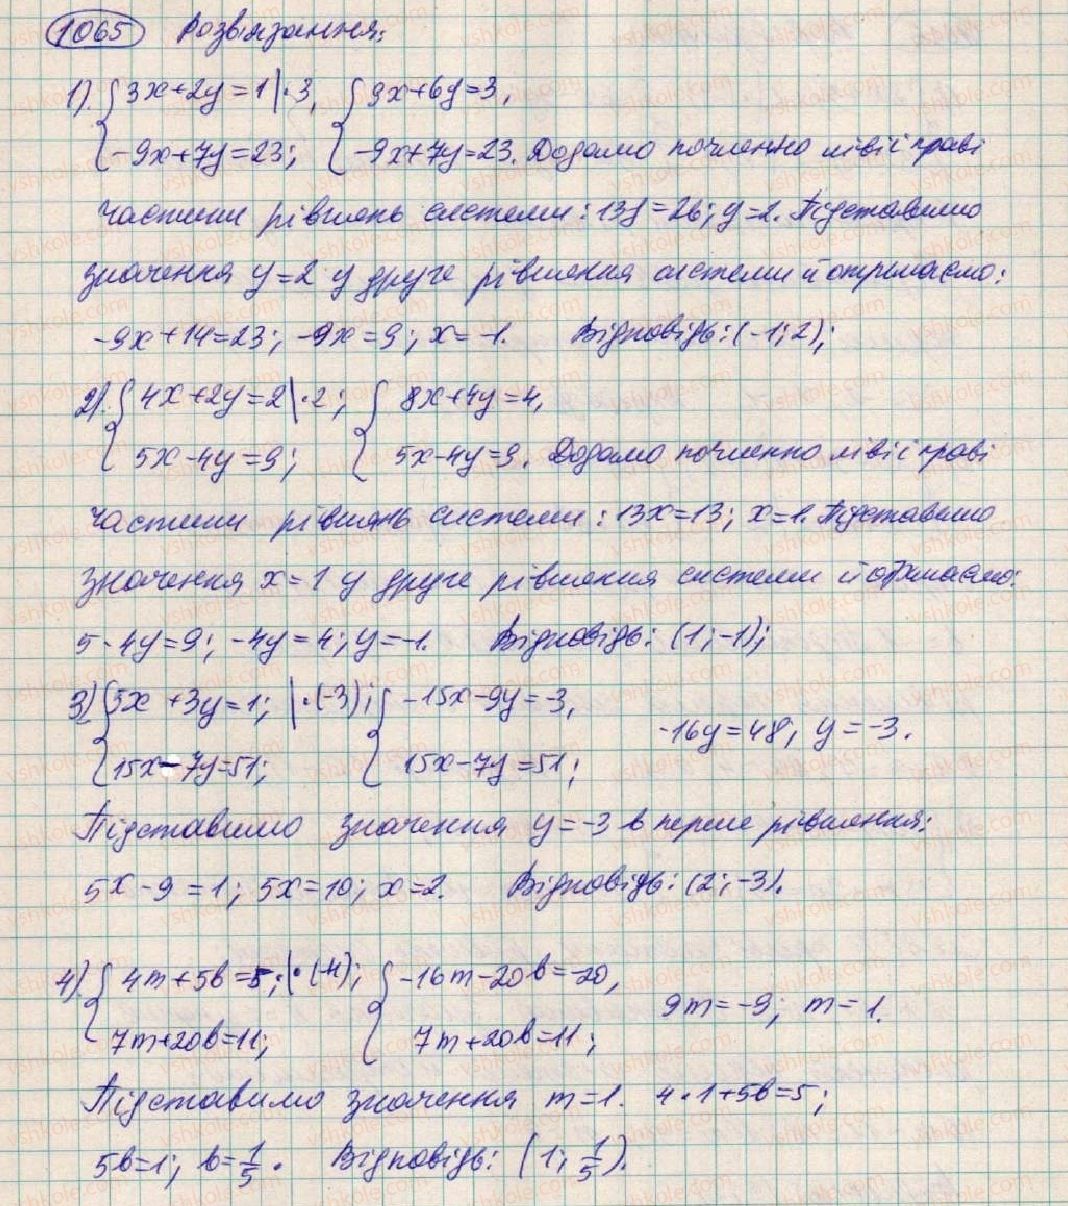 1065 Розв'язання:
1). { 3x+2y=1 |·3, { 9x+6y=3,
-9x+7y=23; -9x+7y=23. Додамо почленно ліві і праві
частини рівнянь системи: 13y=26; y=2. Підставимо
значення y=2 у друге рівняння системи й отримаємо:
-9x+14=23; -9x=9; x=-1. Відповідь: (-1; 2);
2). { 4x+2y=2 |·2; { 8x+4y=4,
5x-4y=9; 5x-4y=9. Додамо почленно ліві і праві
частини рівнянь системи: 13x=13; x=1. Підставимо
значення x=1 у друге рівняння системи й отримаємо:
5-4y=9; -4y=4; y=-1. Відповідь: (1; -1);
3) { 5x+3y=1; |·(-3); { -15x-9y=-3,
15x-7y=51; 15x-7y=51; -16y=48; y=-3.
Підставимо значення y=-3 в перше рівняння:
5x-9=1; 5x=10; x=2. Відповідь: (2; -3).
4). { 4m+5b=5; |·(-4); { -16m-20b=-20,
7m+20b=11; 7m+20b=11; 9m=-9; m=1.
Підставимо значення m=1. 4·1+5b=5;
5b=1; b=1/5. Відповідь: (1; 1/5).